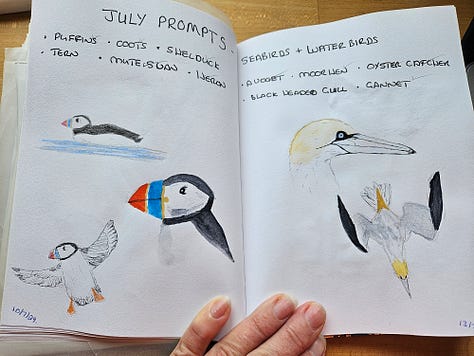 JULY PROMPTS
· PUFFINS · COOTS · SHELDUCK
· TERN · MUTE SWAN · HERON
SEABIRDS + WATERBIRDS
· AVOCET · MOORHEN · OYSTER CATCHER
· BLACK HEADED GULL · GANNET
10/7/24